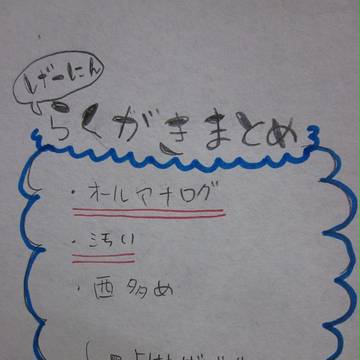 しげーにん
らくがきまとめ
・オールアナログ
・汚い
・西多め